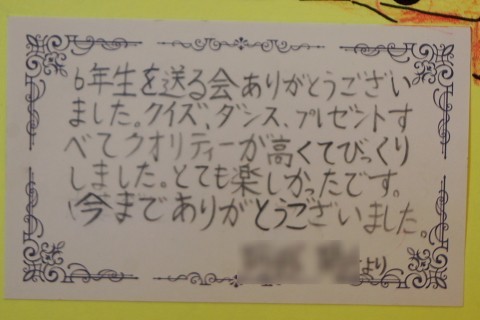 6年生を送る会ありがとうござい
ました。クイズ、ダンス、プレゼントす
べてクオリティーが高くてびっくり
しました。とても楽しかったです。
今までありがとうございました。
より